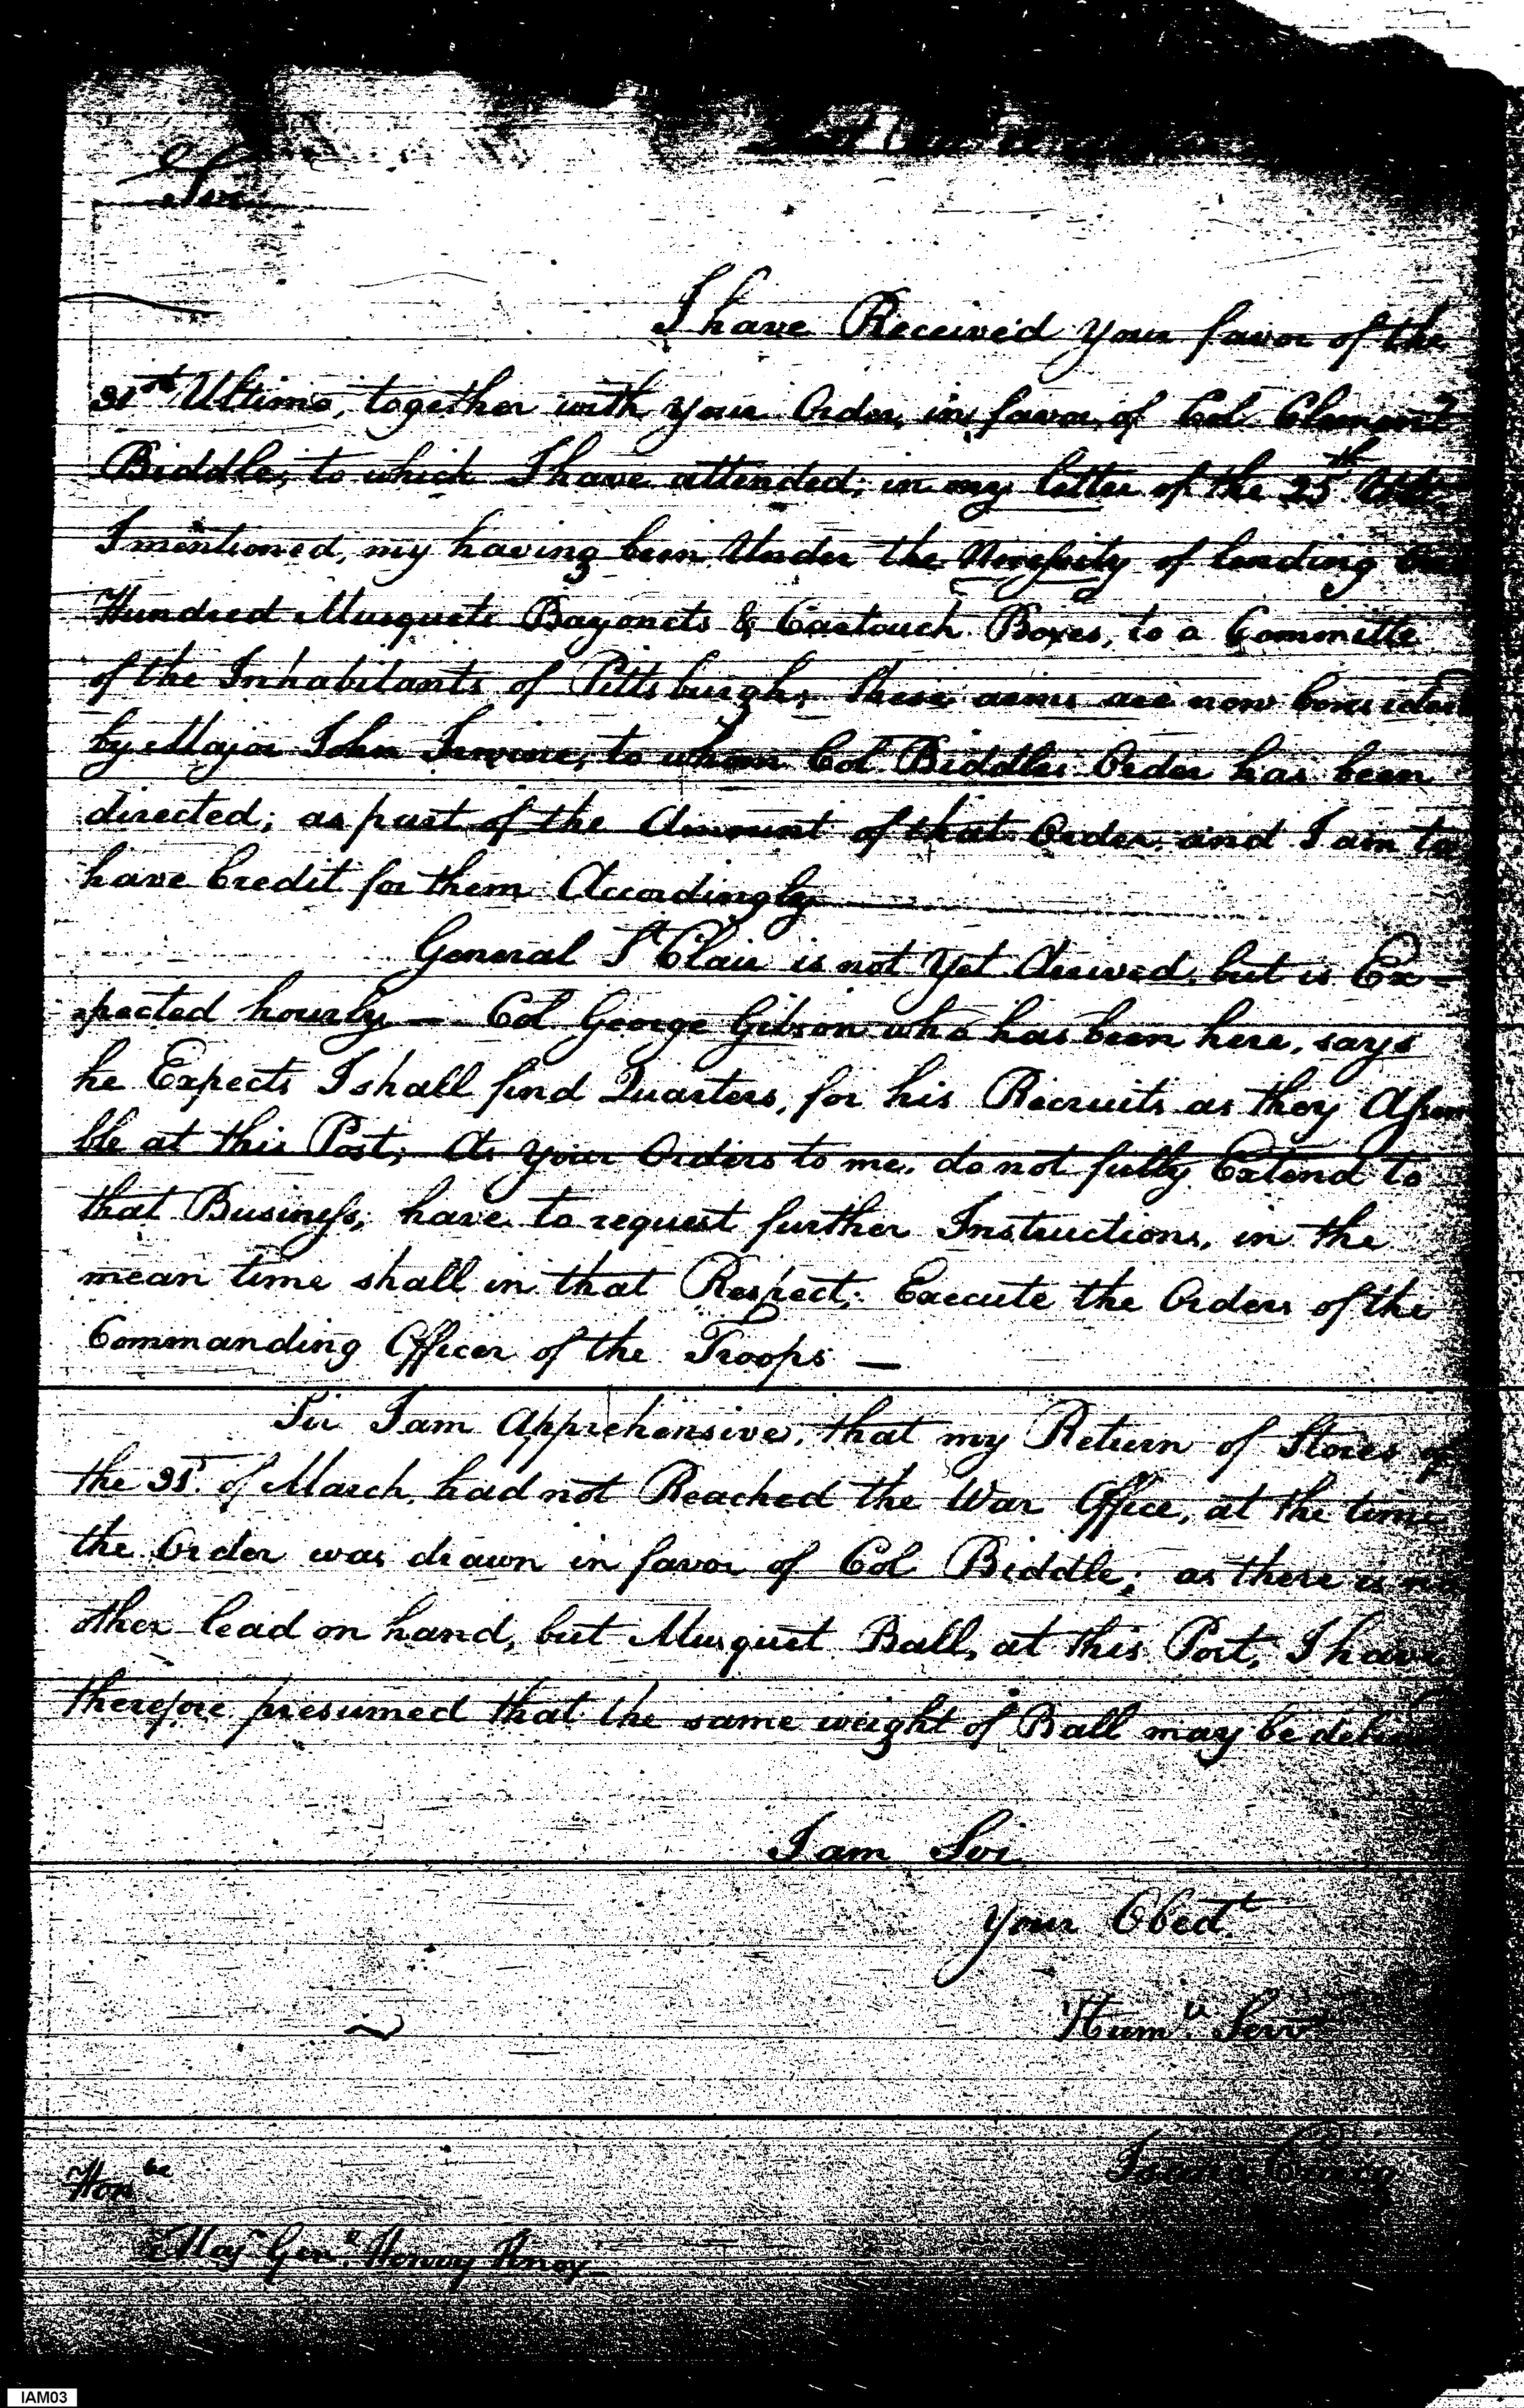 Sir
I have Received your favor of the
31st Ultimo, together with your Order, in favor, of Col. Clement
Biddle; to which I have attended; in my letter of the 25th
I mentioned, my having been Under the Necessity of lending
Hundred Musquets Bayonets & Cartouch Boxes, to a Committe
of the Inhabitants of Pittsburgh, these arms are now Considered
by Major John Irwine; to whom Col. Biddles Order has been
directed; as part of the Amount of that Order, and I am to
have Credit for them Accordingly
General St Clair is not yet Arrived, but is Ex-
pected hourly — Col George Gibson who has been here, says
he Expects I shall find Quarters, for his Recruits as they Assem
ble at this Post; As your Orders to me, do not fully Extend to
that Business; have to request further Instructions, in the
mean time shall in that Respect; Execute the Orders of the
Commanding Officer of the Troops —
Sir I am Apprehensive, that my Return of Stores of
the 31st. of March, had not Reached the War Office, at the time
the Order was drawn in favor of Col Biddle; as there is no
other lead on hand, but Musquet Ball, at this Post, I have
therefore presumed that the same weight of Ball may be
I am Sir
your Obedt.
Humll. Servt
Isaac Craig
Honble
Majr Genll. Henry Knox
IAM03